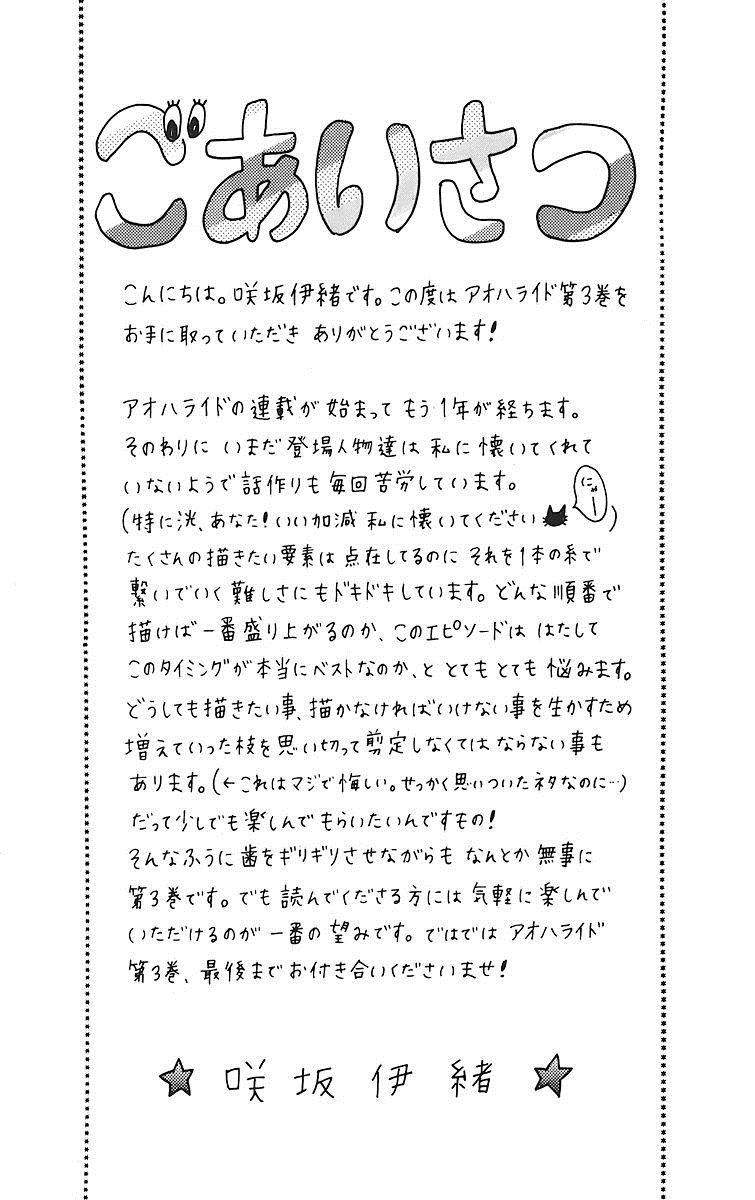 ごあいさつ
こんにちは。咲坂伊緒です。この度はアオハライド第3巻を
お手に取っていただき ありがとうございます!
アオハライドの連載が始まって もう1年が経ちます。
そのわりに いまだ登場人物達は私に懐いてくれて
いないようで話作りも毎回苦労しています。
(特に洸、あなた!いい加減私に懐いてください)
にゃー
たくさんの描きたい要素は点在してるのに それを1本の糸で
繋いでいく難しさにもドキドキしています。どんな順番で
描けば一番盛り上がるのか、このエピソードは はたして
このタイミングが本当にベストなのか、と とてもとても悩みます。
どうしても描きたい事、描かなければいけない事を生かすため
増えていった枝を思い切って剪定しなくてはならない事も
あります。(←これはマジで悔しい。せっかく思いついたネタなのに…)
だって少しでも楽しんでもらいたいんですもの!
そんなふうに歯をギリギリさせながらも なんとか無事に
第3巻です。でも読んでくださる方には気軽に楽しんで
いただけるのが一番の望みです。ではでは アオハライド
第3巻、最後までお付き合いくださいませ!
★ 咲坂伊緒 ★